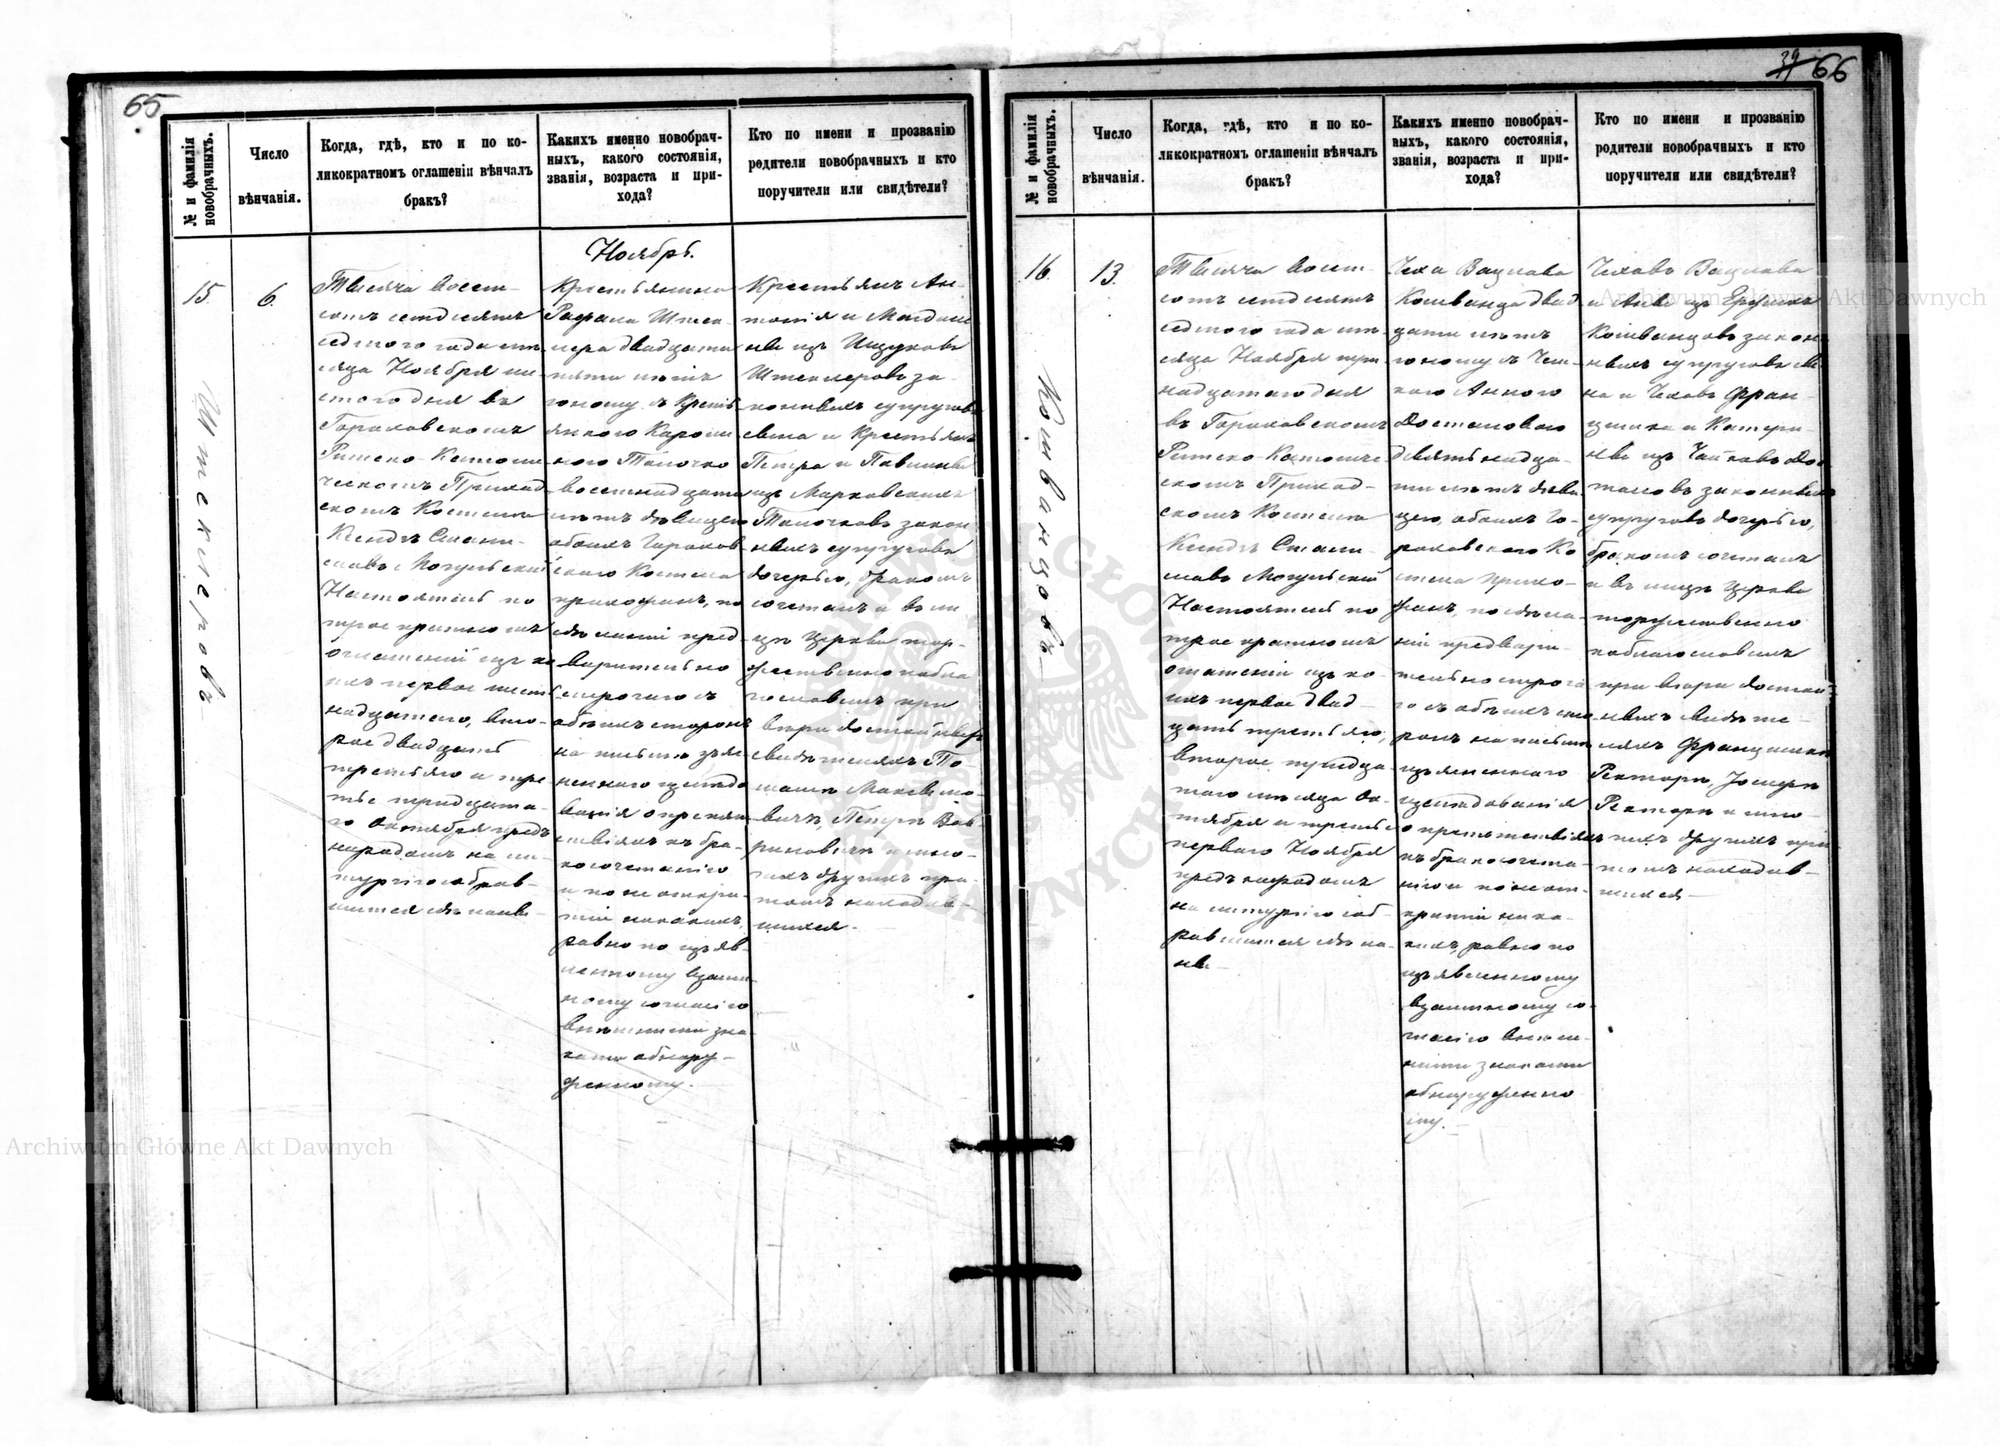 65
№ и фамилія новобрачныхъ.
Число вѣнчанія.
Когда, гдѣ, кто и по ко-
ликократномъ оглашеніи вѣнчалъ
бракъ?
Каихъ именно новобрач-
ныхъ, какого состоянія,
званія, возраста и при-
хода?
Кто по имени и прозванію
родители новобрачныхъ и кто
поручители или свидѣтели?
Ноябрь.
15.
6.
Тысяча восем-
сотъ семдесятъ
седмого года мѣ-
сяца Ноября ше-
стого дня въ
Гороховскомъ
Римско-Католи
ческомъ Приход
скомъ Костелѣ
Ксендзъ Стани-
славъ Могульскій
Настоятель по
трое кратномъ
оглашеній изъ ко
ихъ первое шест
надцатого, вто-
рое двадцать
третьяго и тре-
тье тридцата-
го Октября предъ
народомъ на ли-
тургію собрав-
шимся сдѣланы-
Крестьянина
Рафала Штек-
лера двадцати
пяти лѣтъ
юношу съ Крест
янкою Кароли
ною
восемнадцати
лѣтъ дѣвицею
обоихъ Горохов-
скаго Костела
прихожанъ, по
сдѣланій пред-
варительно
строгаго съ
обѣихъ сторонъ
на письмѣ изъя-
сненнаго изслѣдо
ванія о препят
ствіяхъ къ бра-
косочетанію
и по не откры-
тій никакихъ,
равно по изъяв-
ленному взаим-
ному согласію
внѣшними зна-
ками обнару-
женному.
Крестьянъ Ан-
тонія и Магдале
ны изъ Ищуковъ
Штеклеровъ за-
конныхъ супруговъ
сына и Крестьянъ
Петра и Павлины
изъ Марковскихъ
законныхъ супруговъ
дочерью, бракомъ
сочеталъ и въ ли-
цѣ Церкви тор-
жественно побла
гословилъ при
вѣры достойныхъ
свидѣтеляхъ То-
машѣ Максимо-
вичѣ, Петрѣ Вав-
риновичѣ и мно-
гихъ другихъ при
томъ находив-
шихся.-
Штеклеровъ
39
66
№ и фамилія новобрачныхъ.
Число вѣнчанія.
Когда, гдѣ, кто и по ко-
ликократномъ оглашеніи вѣнчалъ
бракъ?
Какихъ именно новобрач-
ныхъ, какого состоянія,
званія, возраста и при-
хода?
Кто по имени и прозванію
родители новобрачныхъ и кто
поручители или свидѣтели?
16.
13.
Тысяча восем-
сотъ семдесятъ
седмого года мѣ-
сяца Ноября три
надцатого дня
въ Гороховскомъ
Римско-Католиче
скомъ Приход-
скомъ Костелѣ
Ксендзъ Стани-
славъ Могульскій
Настоятель по
трое кратномъ
оглашеній изъ ко-
ихъ первое двад-
цать третьяго,
второе тридца-
таго мѣсяца Ок-
тября и третье
перваго Ноября
предъ народомъ
на литургію соб-
равшимся сдѣла-
ны.-
Чеха Вацлава
двад
цати лѣтъ
юношу съ Чеш-
кою Анною
Досталовою
девятьнадца-
ти лѣтъ дѣви
цею, обоихъ Го-
роховского Ко
стела прихо-
жанъ, по сдѣла-
ній предвари-
тельно строга
го съ обѣихъ сто
ронъ на письмѣ
изъясненного
изслѣдованія
о препятствіяхъ
къ бракосочета-
нію и по не от-
крытій ника-
кихъ, равно по
изъявленному
взаимному со-
гласію внѣш-
ними знаками
обнаруженно
му.-
Чеховъ Вацлава
и Анны изъ
законныхъ супруговъ сы-
на и Чеховъ Фран-
цишка и Катери-
ны изъ Чайковъ Дос-
таловъ законныхъ
супруговъ дочерью,
бракомъ сочеталъ
и въ лицѣ Церкви
торжественно
поблагословилъ
при вѣры достой-
ныхъ свидѣте-
ляхъ Францишкѣ
Ректорѣ, Іосифѣ
Ректорѣ и мно-
гихъ другихъ при
томъ находив-
шихся.-
Archiwum Główne Akt Dawnych
Archiwum Główne Akt Dawnych